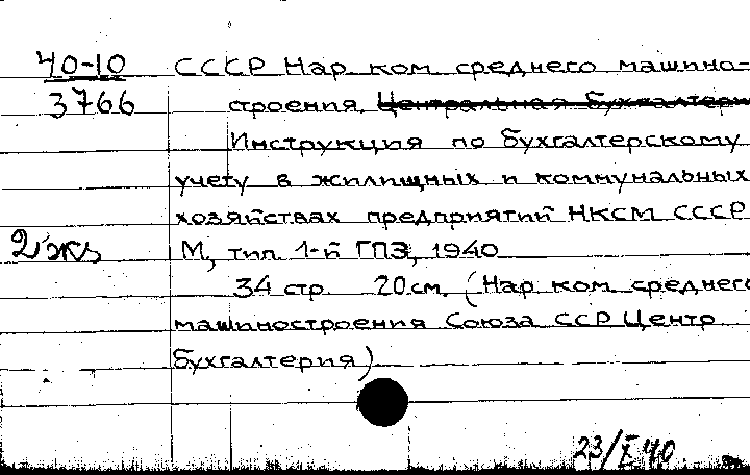 40-10 СССР Нар. ком. среднего машино-
3766 строения. Центральная Бухгалтерия
Инструкция по бухгалтерскому
учету в жилищных и коммунальных
хозяйствах предприятий НКСМ СССР
2 экз М, тип. 1-й ГПЭ, 1940
34 стр. 20 см. (Нар. ком. среднего
машиностроения Союза ССР Центр
бухгалтерия)
23/X 40